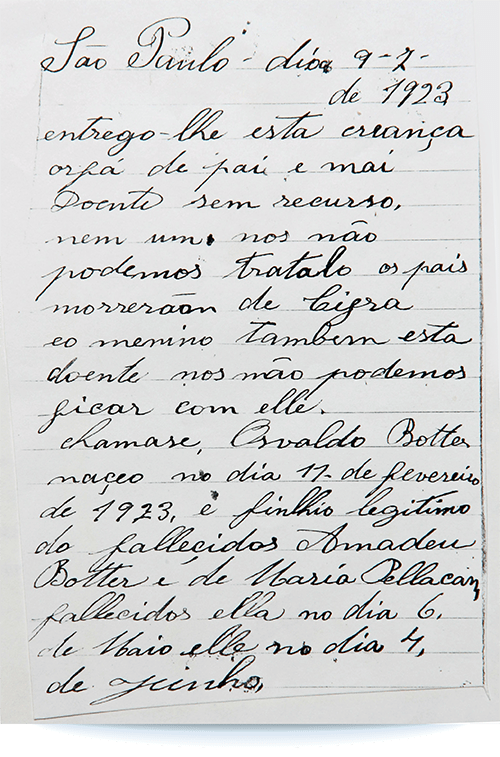 São Paulo - dia 9-7-
de 1923
entrego-lhe esta creança
orfá de pai e mai
Doente sem recurso,
nem um. nos não
podemos tratalo os pais
morrerãon de Cigra
eo menino tambem esta
doente nos não podemos
ficar com elle.
chamase, Osvaldo Botter
naçeo no dia 17 de fevereiro
de 1923, e finlhio legitimo
do fallecidos Amadeu
Botter e de Maria Pellacan
fallecidos ella no dia 6.
de Maio elle no dia 4,
de Junho,